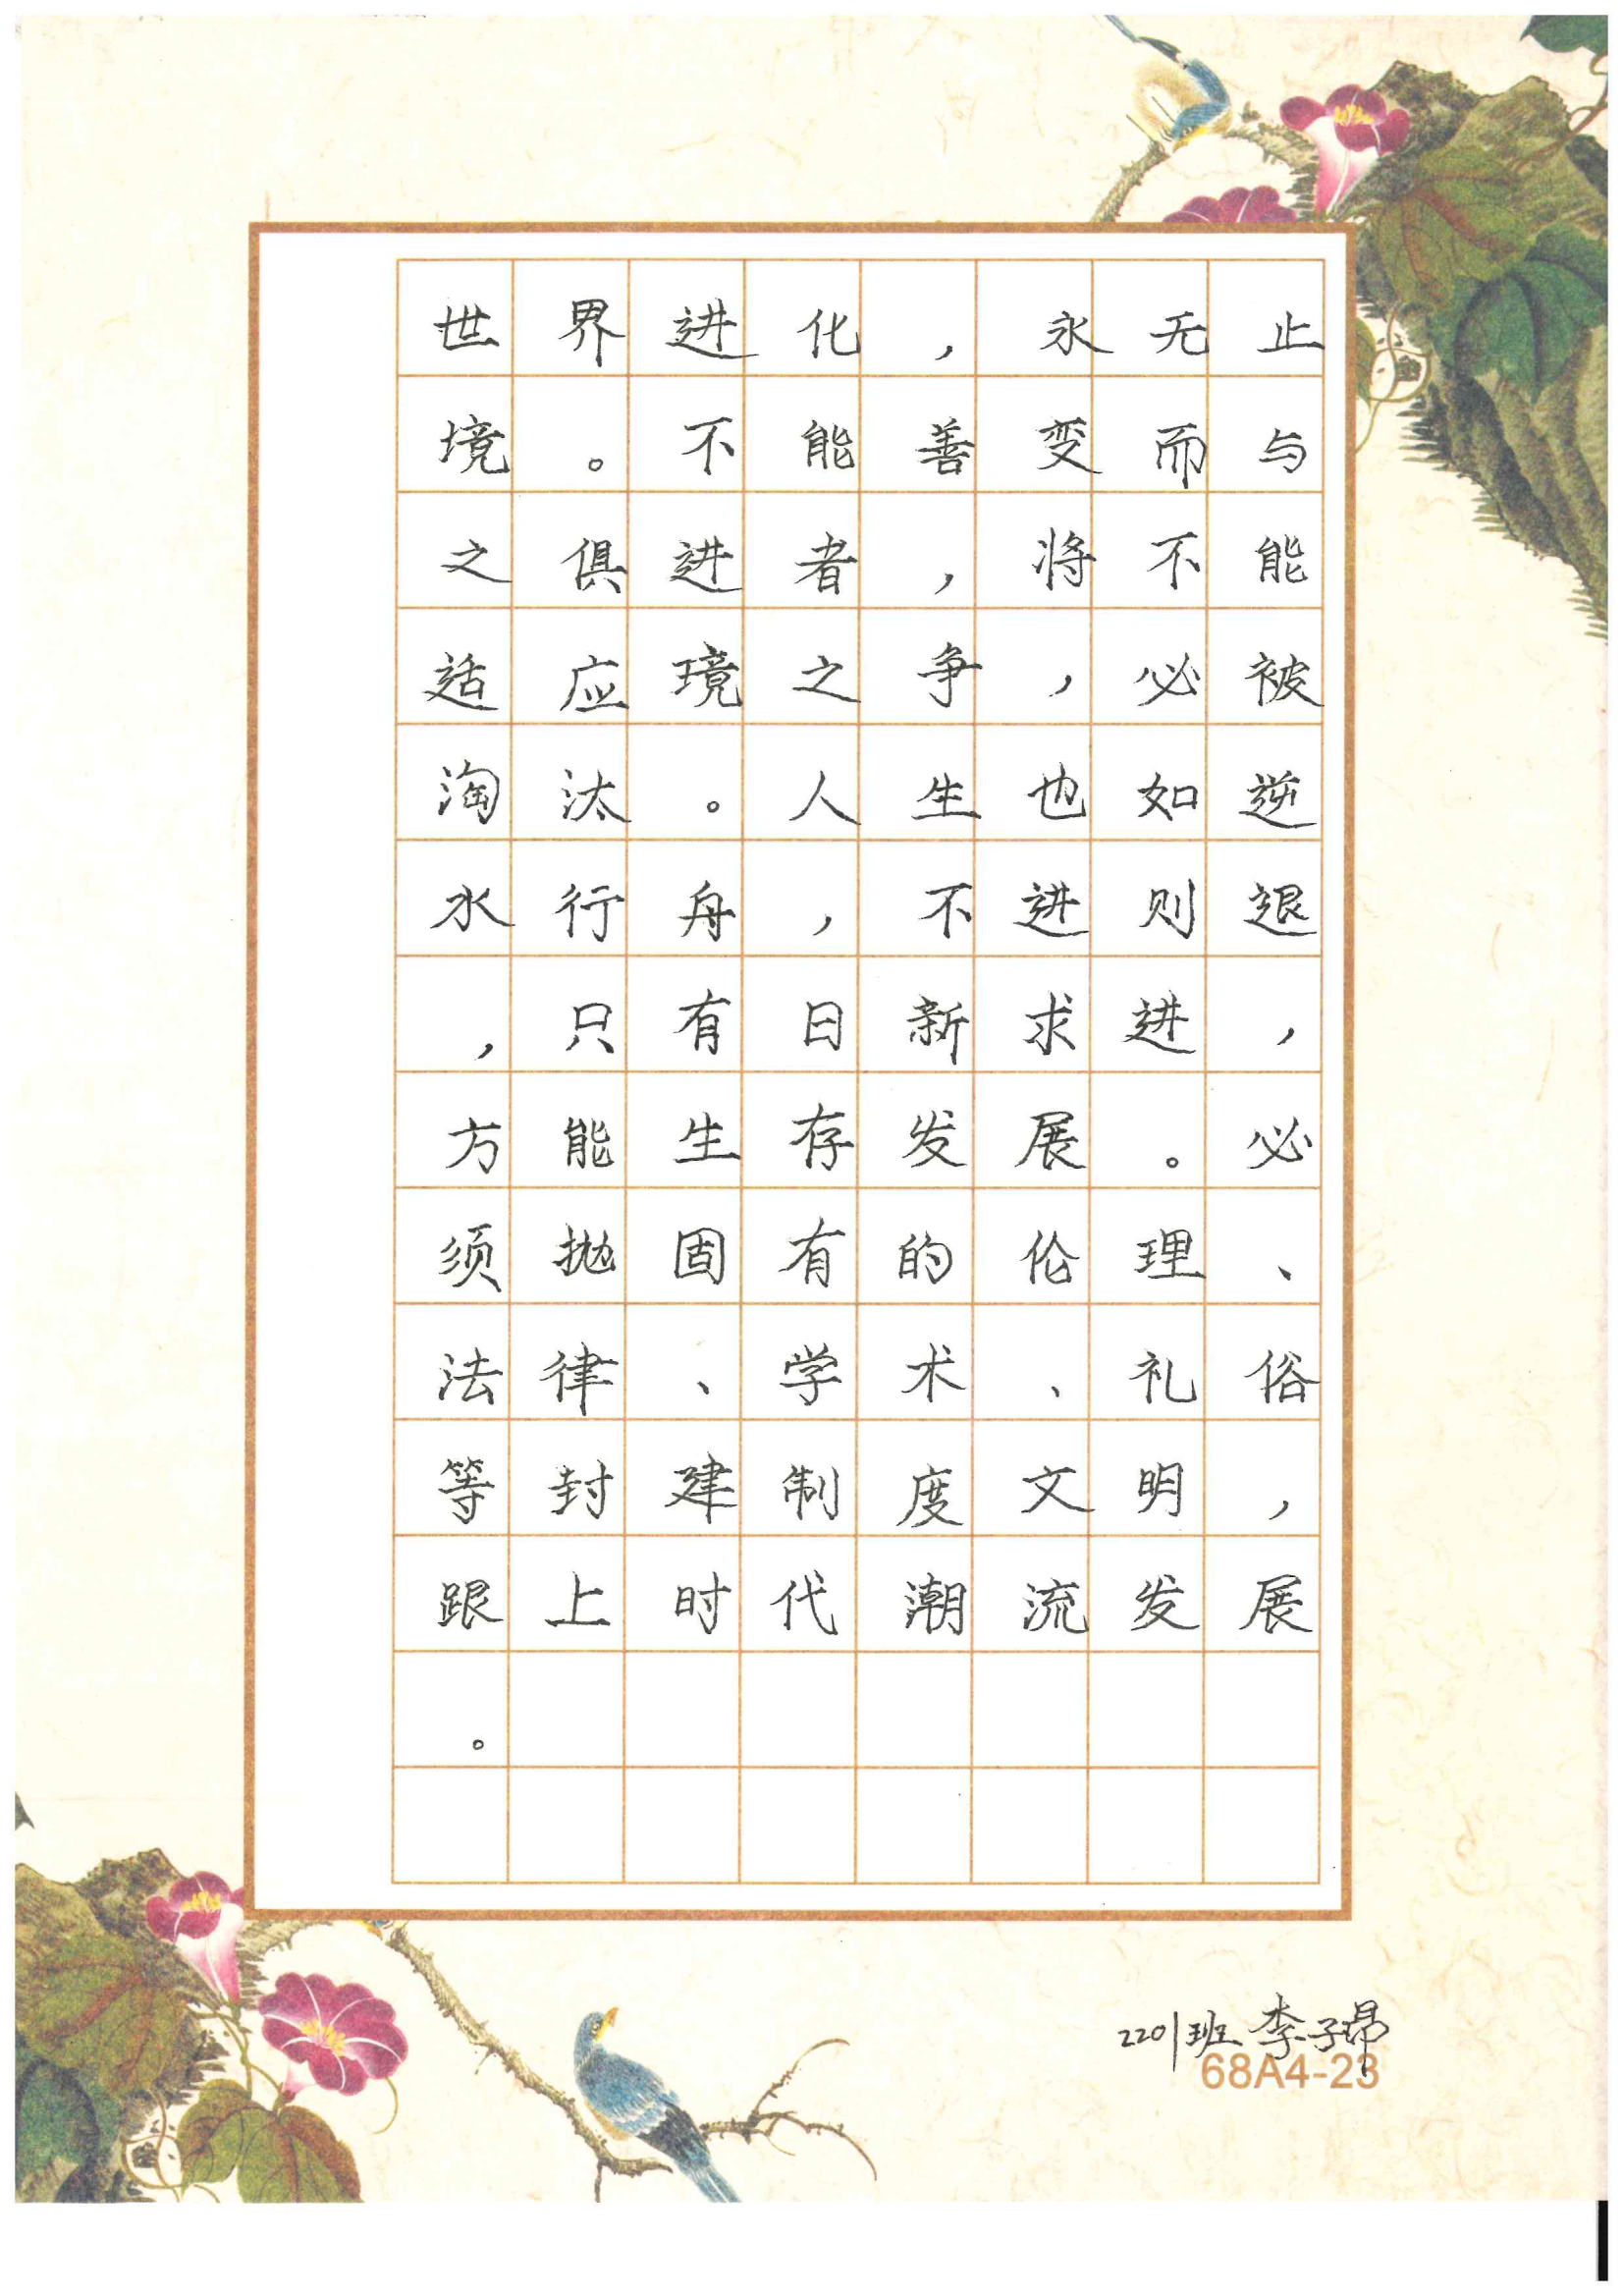 世界进化，永无止
境。不能善变而与
之俱进者，将不能
适应境之争，必被
淘汰。人生也如逆
水行舟，不进则退
，只有日新求进，
方能生存发展。必
须抛固有的伦理、
法律、学术、礼俗
等封建制度文明，
跟上时代潮流发展
。
2201班 李子昂
68A4-23